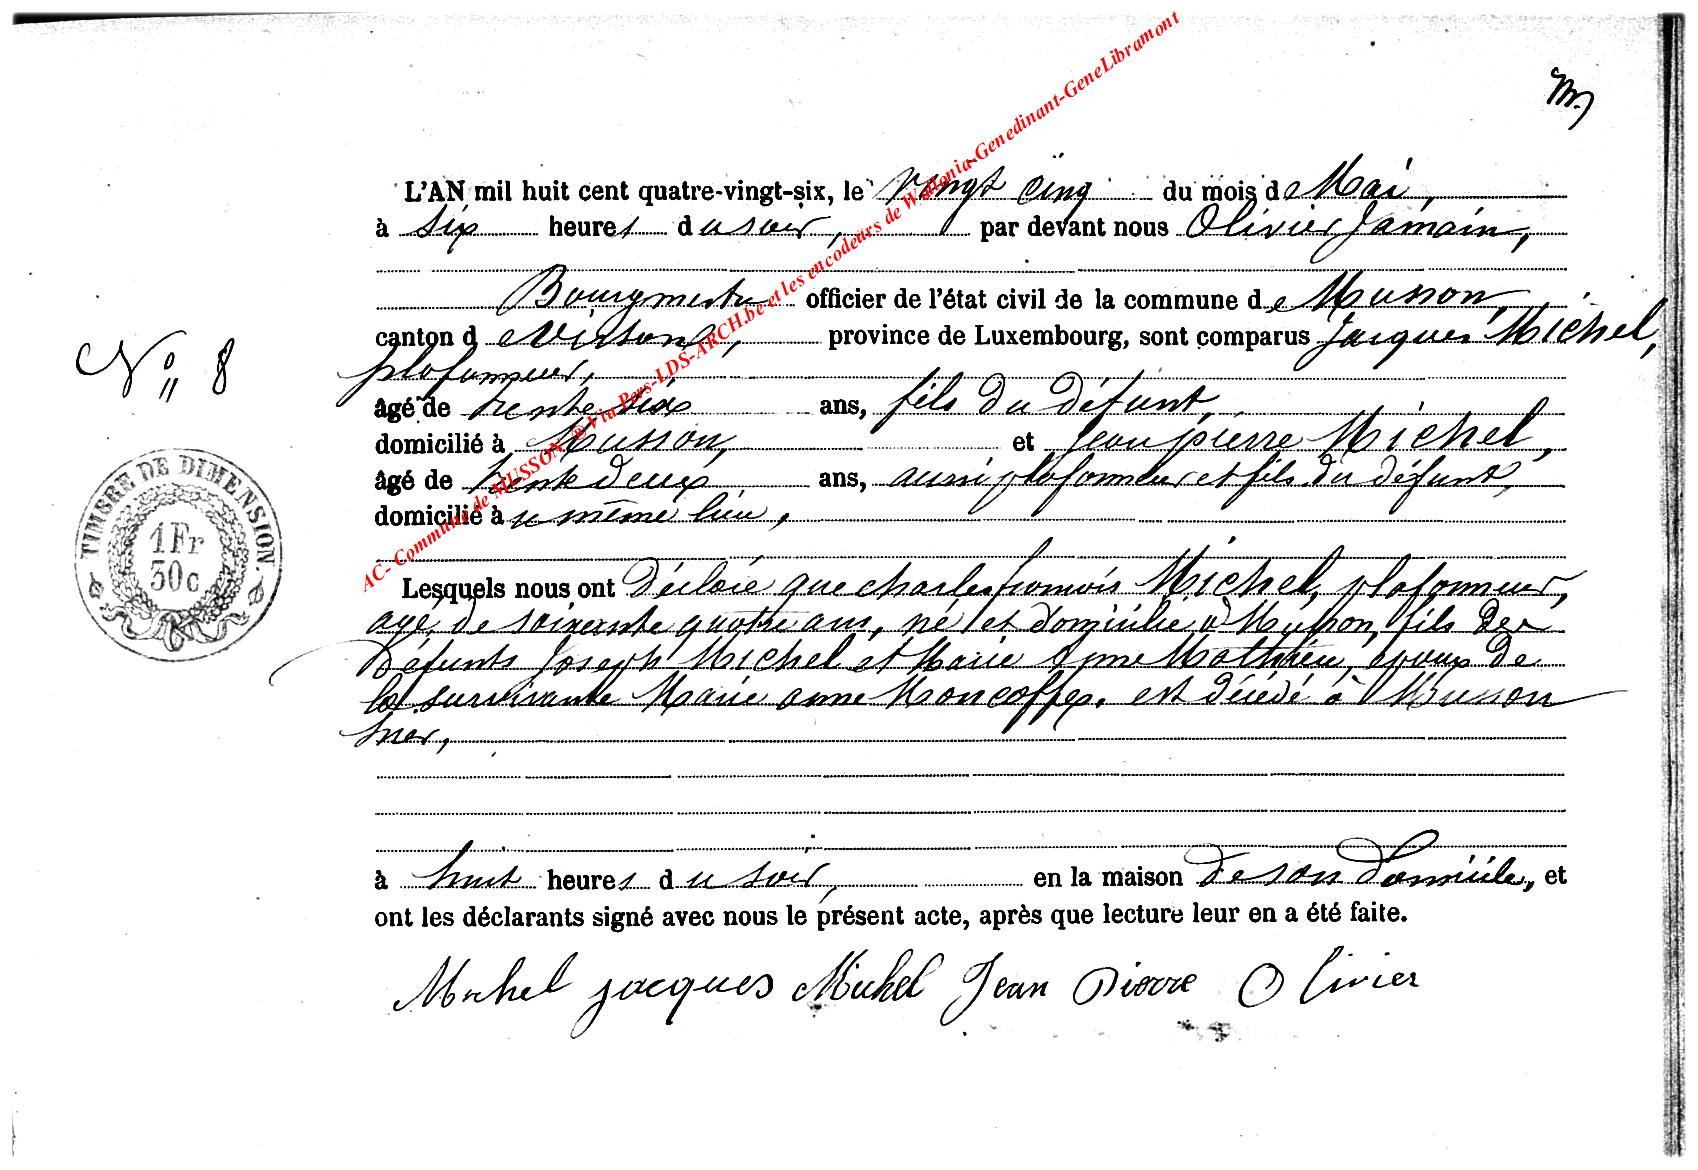 M
L'AN mil huit cent quatre-vingt-six, le vingt cinq du mois de Mai,
à six heures du soir, par devant nous Olivier Jamain,
Bourgmestre officier de l'état civil de la commune de Musson,
canton de Virton, province de Luxembourg, sont comparus Jacques Michel,
plafonneur,
âgé de trente six ans, fils du défunt,
domicilié à Musson, et Jean pierre Michel,
âgé de trente deux ans, aussi plafonneur et fils du défunt,
domicilié au même lieu,
N° 8
TIMBRE DE DIMENSION.
1 Fr
30c
Lesquels nous ont déclaré que charles françois Michel, plafonneur,
agé, de soixante quatre ans, né et domicilié à Musson, fils des
défunts Joseph Michel et Marie Anne Mathieu, epoux de
la survivante Marie anne Moncoffez. est décédé à Musson
hier,
à huit heures du soir, en la maison de son domicile, et
ont les déclarants signé avec nous le présent acte, après que lecture leur en a été faite.
Michel jacques Michel Jean Pierre Olivier
AC- Commune de MUSSON ® Via Pers-LDS-ARCH.be et les encodeurs de Wallonia-Genedinant-GeneLibramont